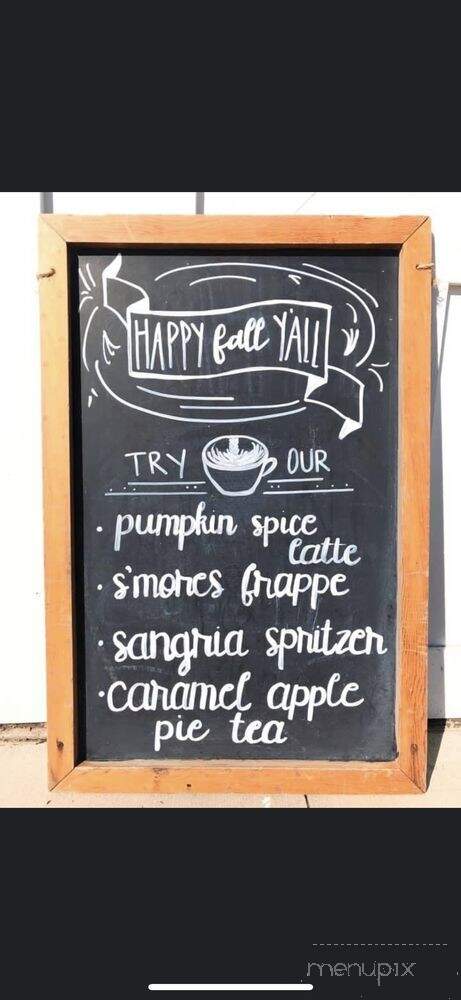 HAPPY fall Y'ALL
TRY OUR
• pumpkin spice
latte
• s'mores frappe
• sangria spritzer
• caramel apple
pie tea
menupix